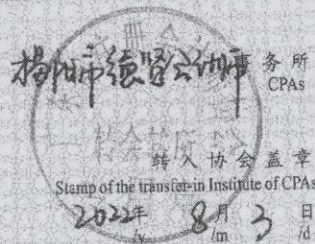 揭阳市德贤会计师事务所
CPAs
转入协会盖章
Stamp of the transfer-in Institute of CPAs
2022年 8月 3日
/y /m /d